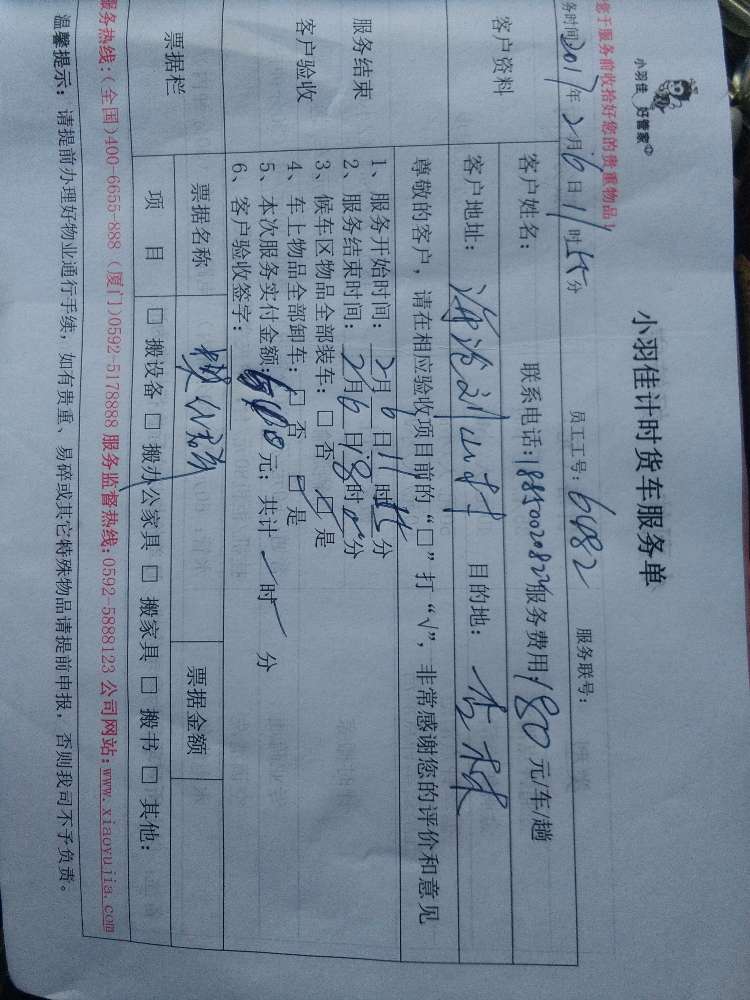 小羽佳 好管家
小羽佳计时货车服务单
您于服务前收拾好您的贵重物品!
务时间2017年2月6日11时15分 员工工号：6482 服务联号：
客户资料
客户姓名： 联系电话： 服务费用：180元/车/趟
客户地址： 海沧 村 目的地： 杏林
尊敬的客户，请在相应验收项目前的“□”打“√”，非常感谢您的评价和意见
服务结束
客户验收
1、服务开始时间：2月6日11时15分
2、服务结束时间：2月6日 时 分
3、候车区物品全部装车：□ 否 □ 是
4、车上物品全部卸车：□ 否 □ 是
5、本次服务实付金额： 元；共计 时 分
6、客户验收签字：
票据栏
票据名称 票据金额
项 目 □ 搬设备 □ 搬办公家具 □ 搬家具 □ 搬书 □ 其他：
服务热线：(全国)400-6655-888 (厦门)0592-5178888 服务监督热线：0592-5888123 公司网站：www.xiaoyujia.com
温馨提示：请提前办理好物业通行手续，如有贵重、易碎或其它特殊物品请提前申报，否则我司不予负责。